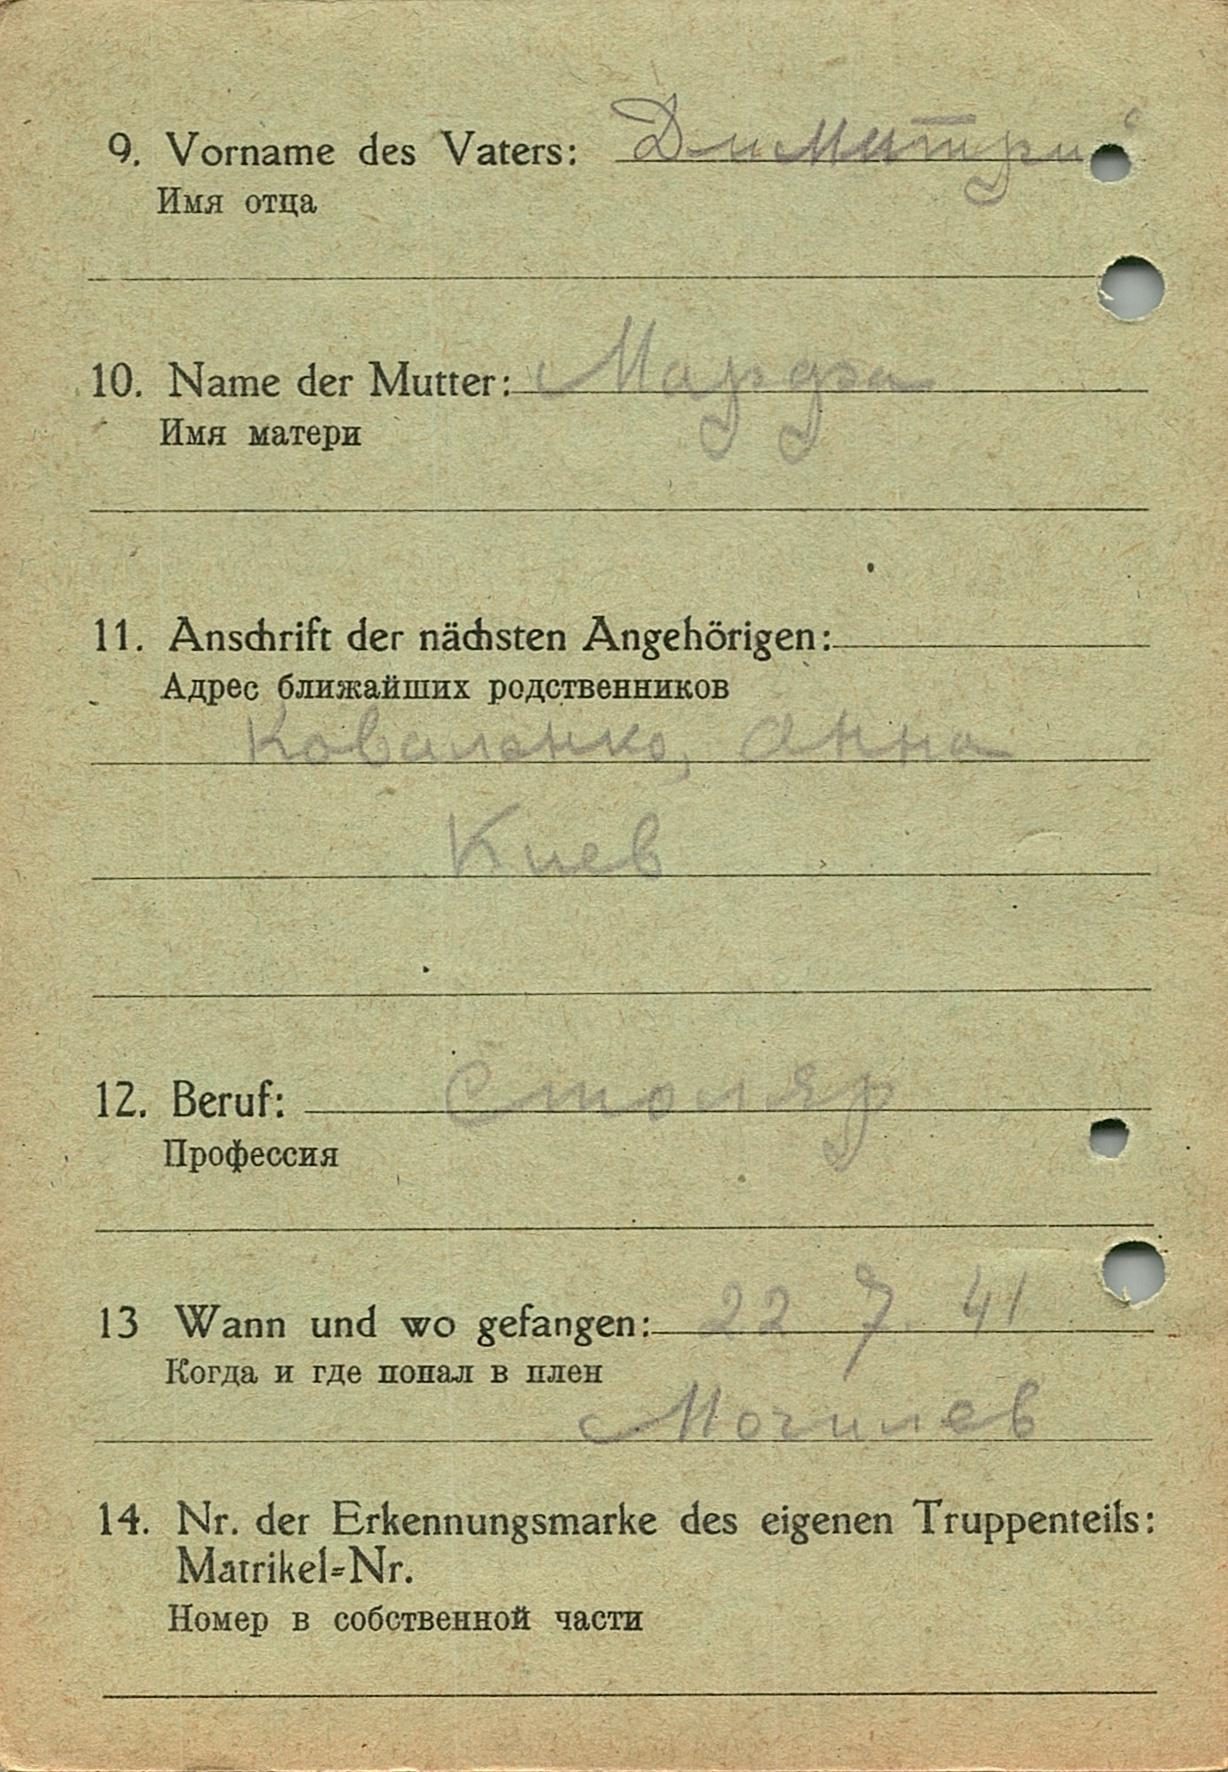 9. Vorname des Vaters: Димитрий
Имя отца
10. Name der Mutter: Марфа
Имя матери
11. Anschrift der nächsten Angehörigen:
Адрес ближайших родственников
Коваленко, Анна
Киев
12. Beruf: Столяр
Профессия
13 Wann und wo gefangen: 22 7. 41
Когда и где попал в плен
Могилев
14. Nr. der Erkennungsmarke des eigenen Truppenteils:
Matrikel=Nr.
Номер в собственной части